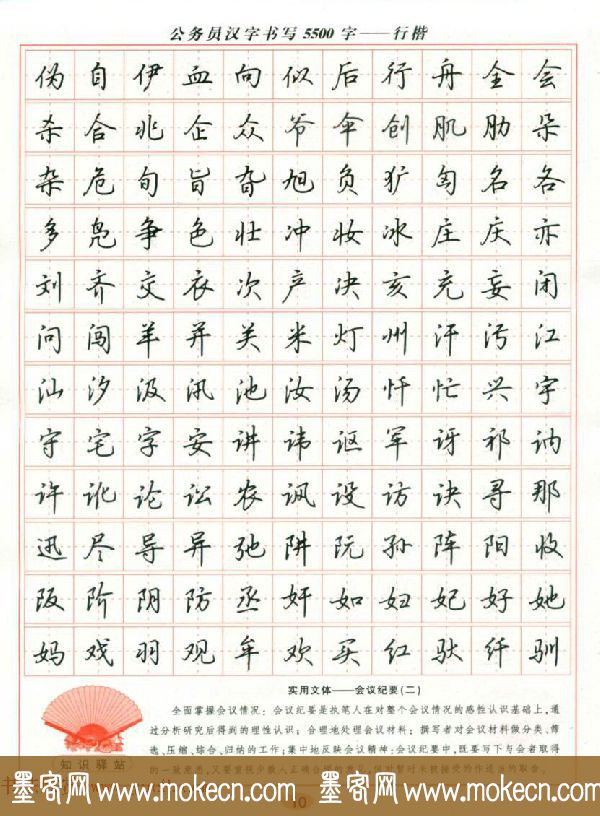 公务员汉字书写5500字——行楷
伪自伊血向似后行舟全会
杀合兆企众爷伞创肌肋朵
杂危旬旨旮旭负犷匈名各
多凫争色壮冲妆冰庄庆亦
刘齐交衣次产决亥充妄闭
问闯羊并关米灯州汗污江
汕汐汲汛池汝汤忏忙兴宇
守宅字安讲讳讴军讶祁讷
许讹论讼农讽设访诀寻那
迅尽导异弛阱阮孙阵阳收
阪阶阴防丞奸如妇妃好她
妈戏羽观牟欢买红驮纤驯
实用文体——会议纪要(二)
全面掌握会议情况:会议纪要是执笔人在对整个会议情况的感性认识基础上,通
过分析研究后得到的理性认识;合理地处理会议材料:撰写者对会议材料做分类、筛
选、压缩、综合、归纳的工作;集中地反映会议精神:会议纪要中,既要写下与会者取得
知识驿站
墨客网 www.mokecn.com 墨客网 www.mokecn.com
10